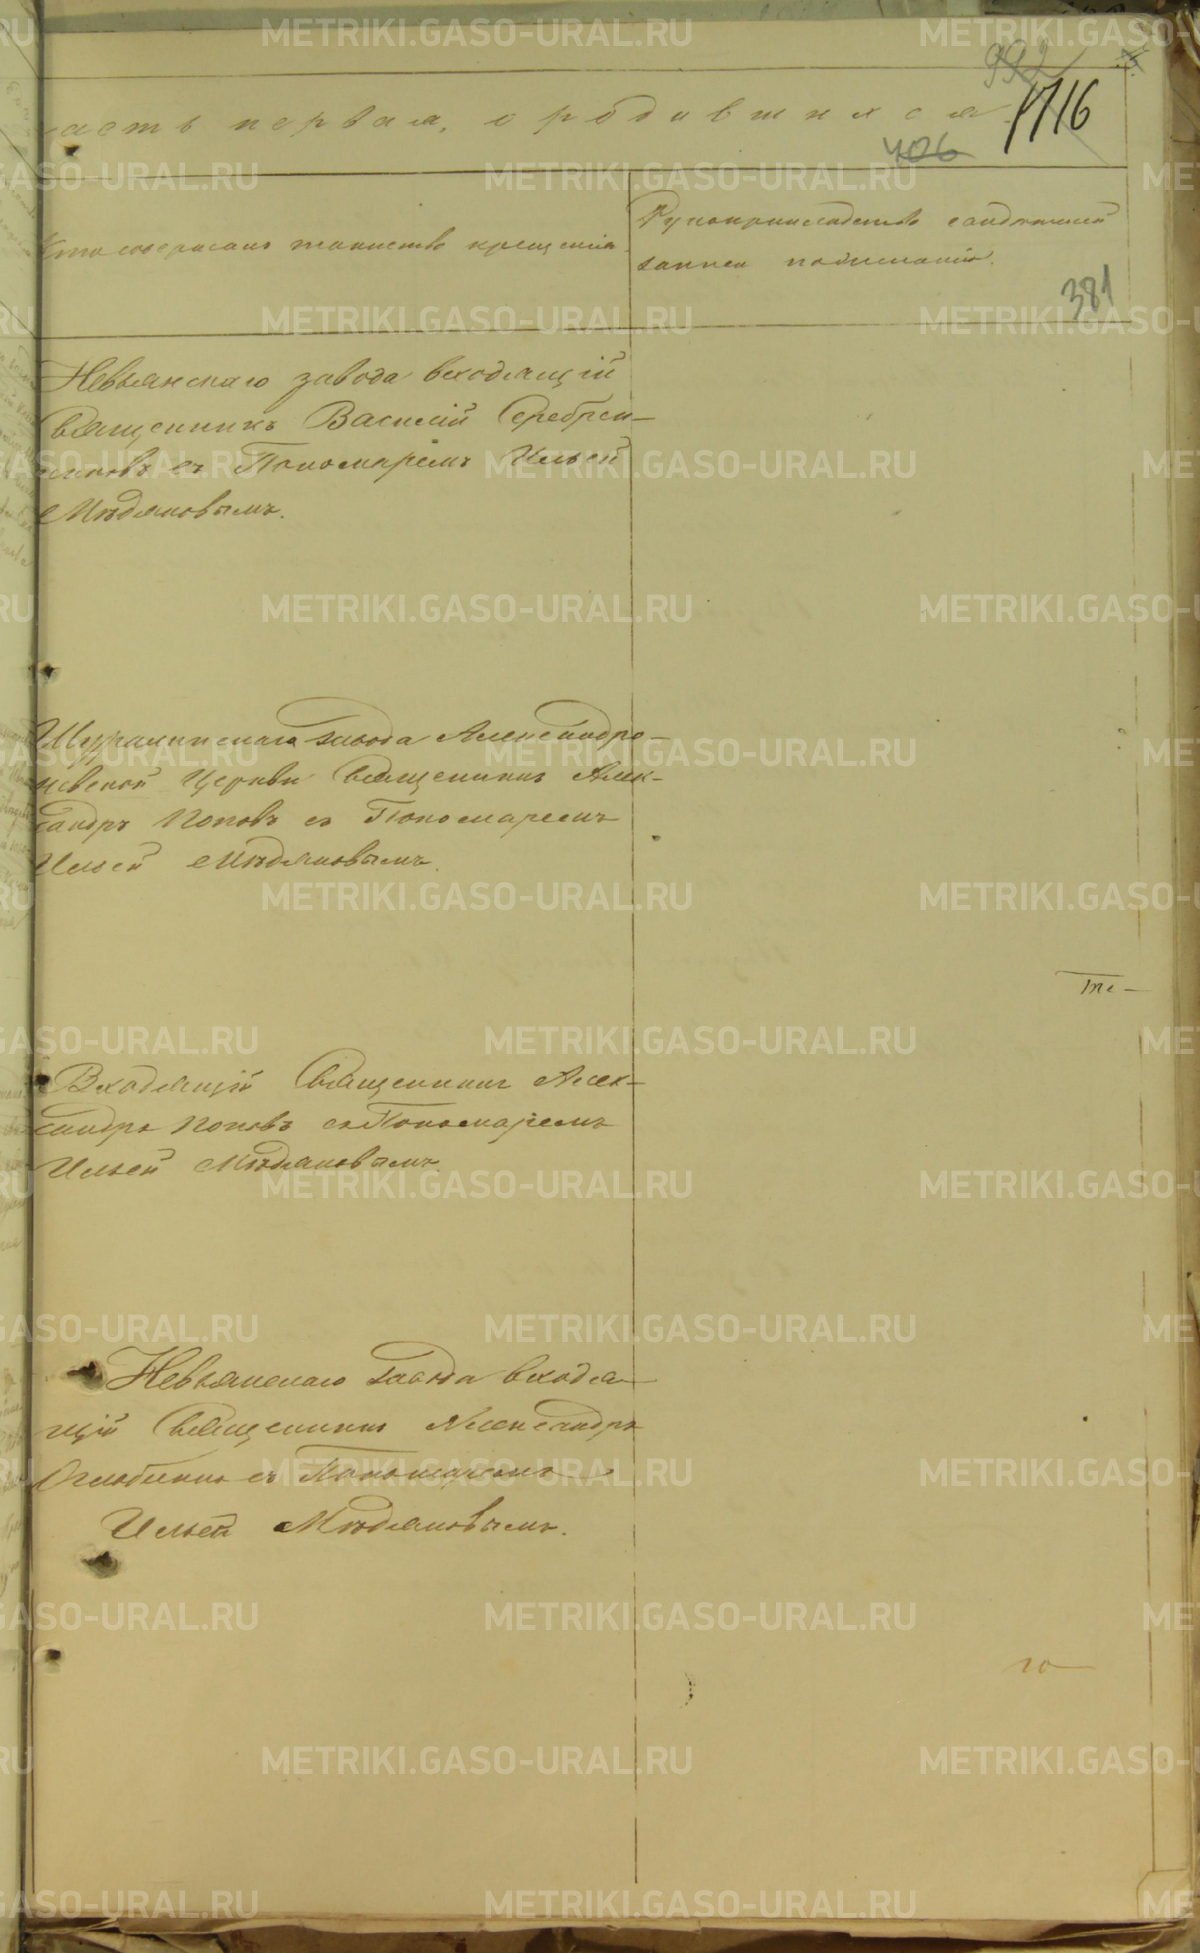 992
часть первая, о родившихся
1716
406
Кто совершалъ таинство крещенія
Рукоприкладство свидѣтелей
записи по желанію.
381
Невьянскаго завода входящій
Священникъ Василій Серебрен-
никовъ съ Пономаремъ Ильей
Мѣдяковымъ.
Шуралинскаго завода Александро-
невской Церкви Священникъ Алек-
сандръ Поповъ съ Пономаремъ
Ильей Мѣдяковымъ.
те-
Входящій Священникъ Алек-
сандръ Поповъ съ Пономаремъ
Ильей Мѣдяковымъ.
Невьянскаго завода входя-
щій Священникъ Александръ
Оглоблинъ съ Пономаремъ
Ильей Мѣдяковымъ.
го
METRIKI.GASO-URAL.RU